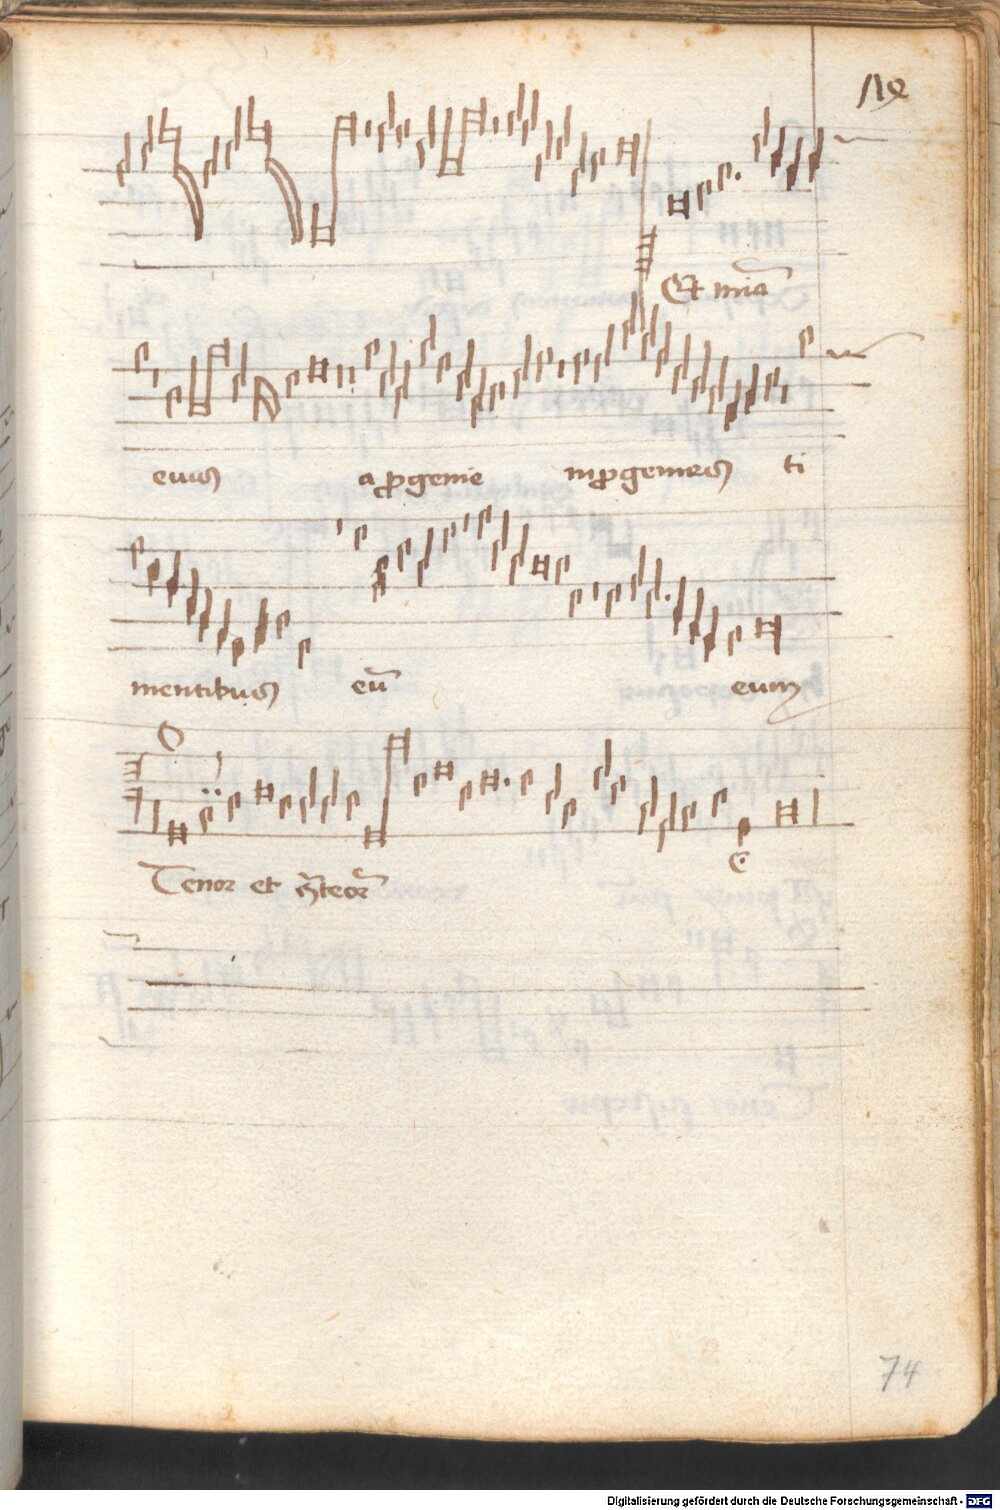 Et mīa
eius a ꝓgenie in ꝓgenies ti
mentibus eū eum
Tenor et
74
Digitalisierung gefördert durch die Deutsche Forschungsgemeinschaft - DFG